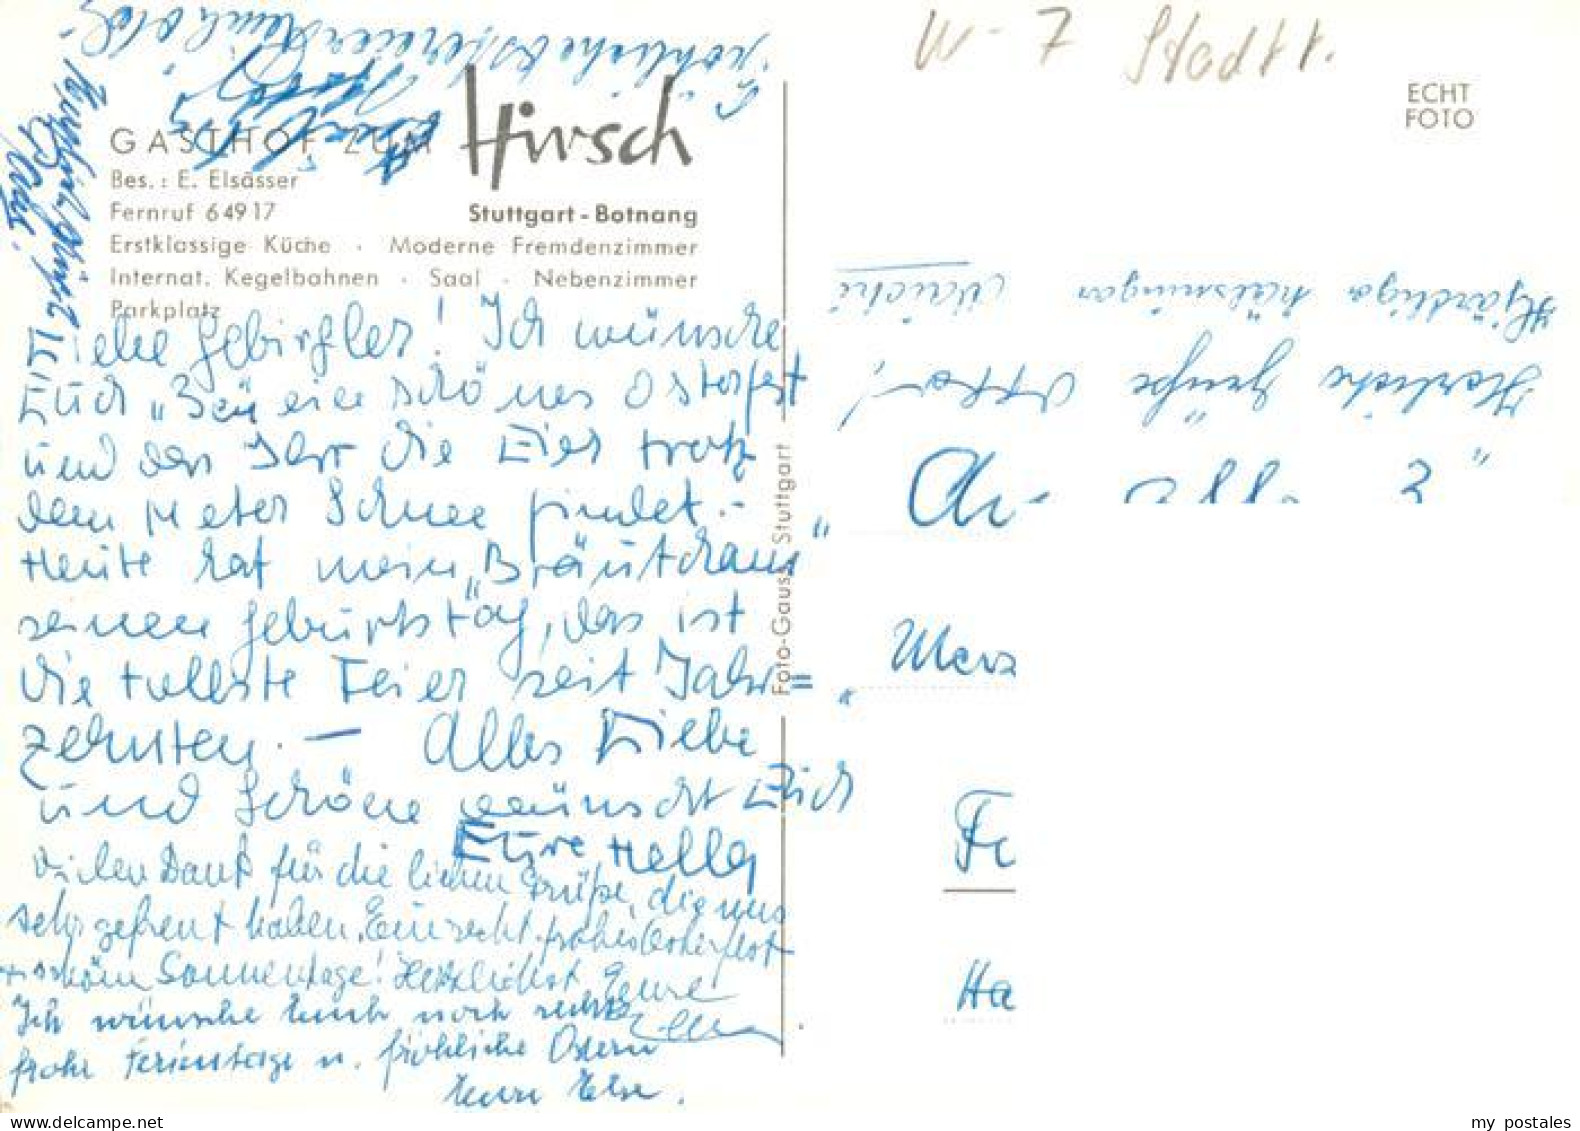 W-7 Stadtt.
ECHT
FOTO
GASTHOF ZUM Hirsch
Bes.: E. Elsässer
Fernruf 64917
Stuttgart-Botnang
Erstklassige Küche · Moderne Fremdenzimmer
Internat. Kegelbahnen · Saal · Nebenzimmer
Parkplatz
Foto-Gauss Stuttgart
Liebe Gebirgler! Ich wünsche
Euch eine schönes Osterfest
und das Ihr die Eier trotz
dem Meter Schnee findet.-
Heute hat mein „Bräutcham"
seinen Geburtstag, das ist
die tollste Feier seit Jahr=
zehnten. — Alles Liebe
und Schöne wünscht Euch
Eure Hella
Vielen Dank für die lieben Grüße, die uns
sehr gefreut haben. Ein recht frohes Osterfest
+ schöne Sonnentage! Herzlichst Eure
Ich wünsche Euch noch recht
frohe Ferientage u. fröhliche Ostern
Eure Else.
Fröhliche Ostereier
Hjärtliga hälsningar
Herzliche Grüße
Fr
Ha
my postales